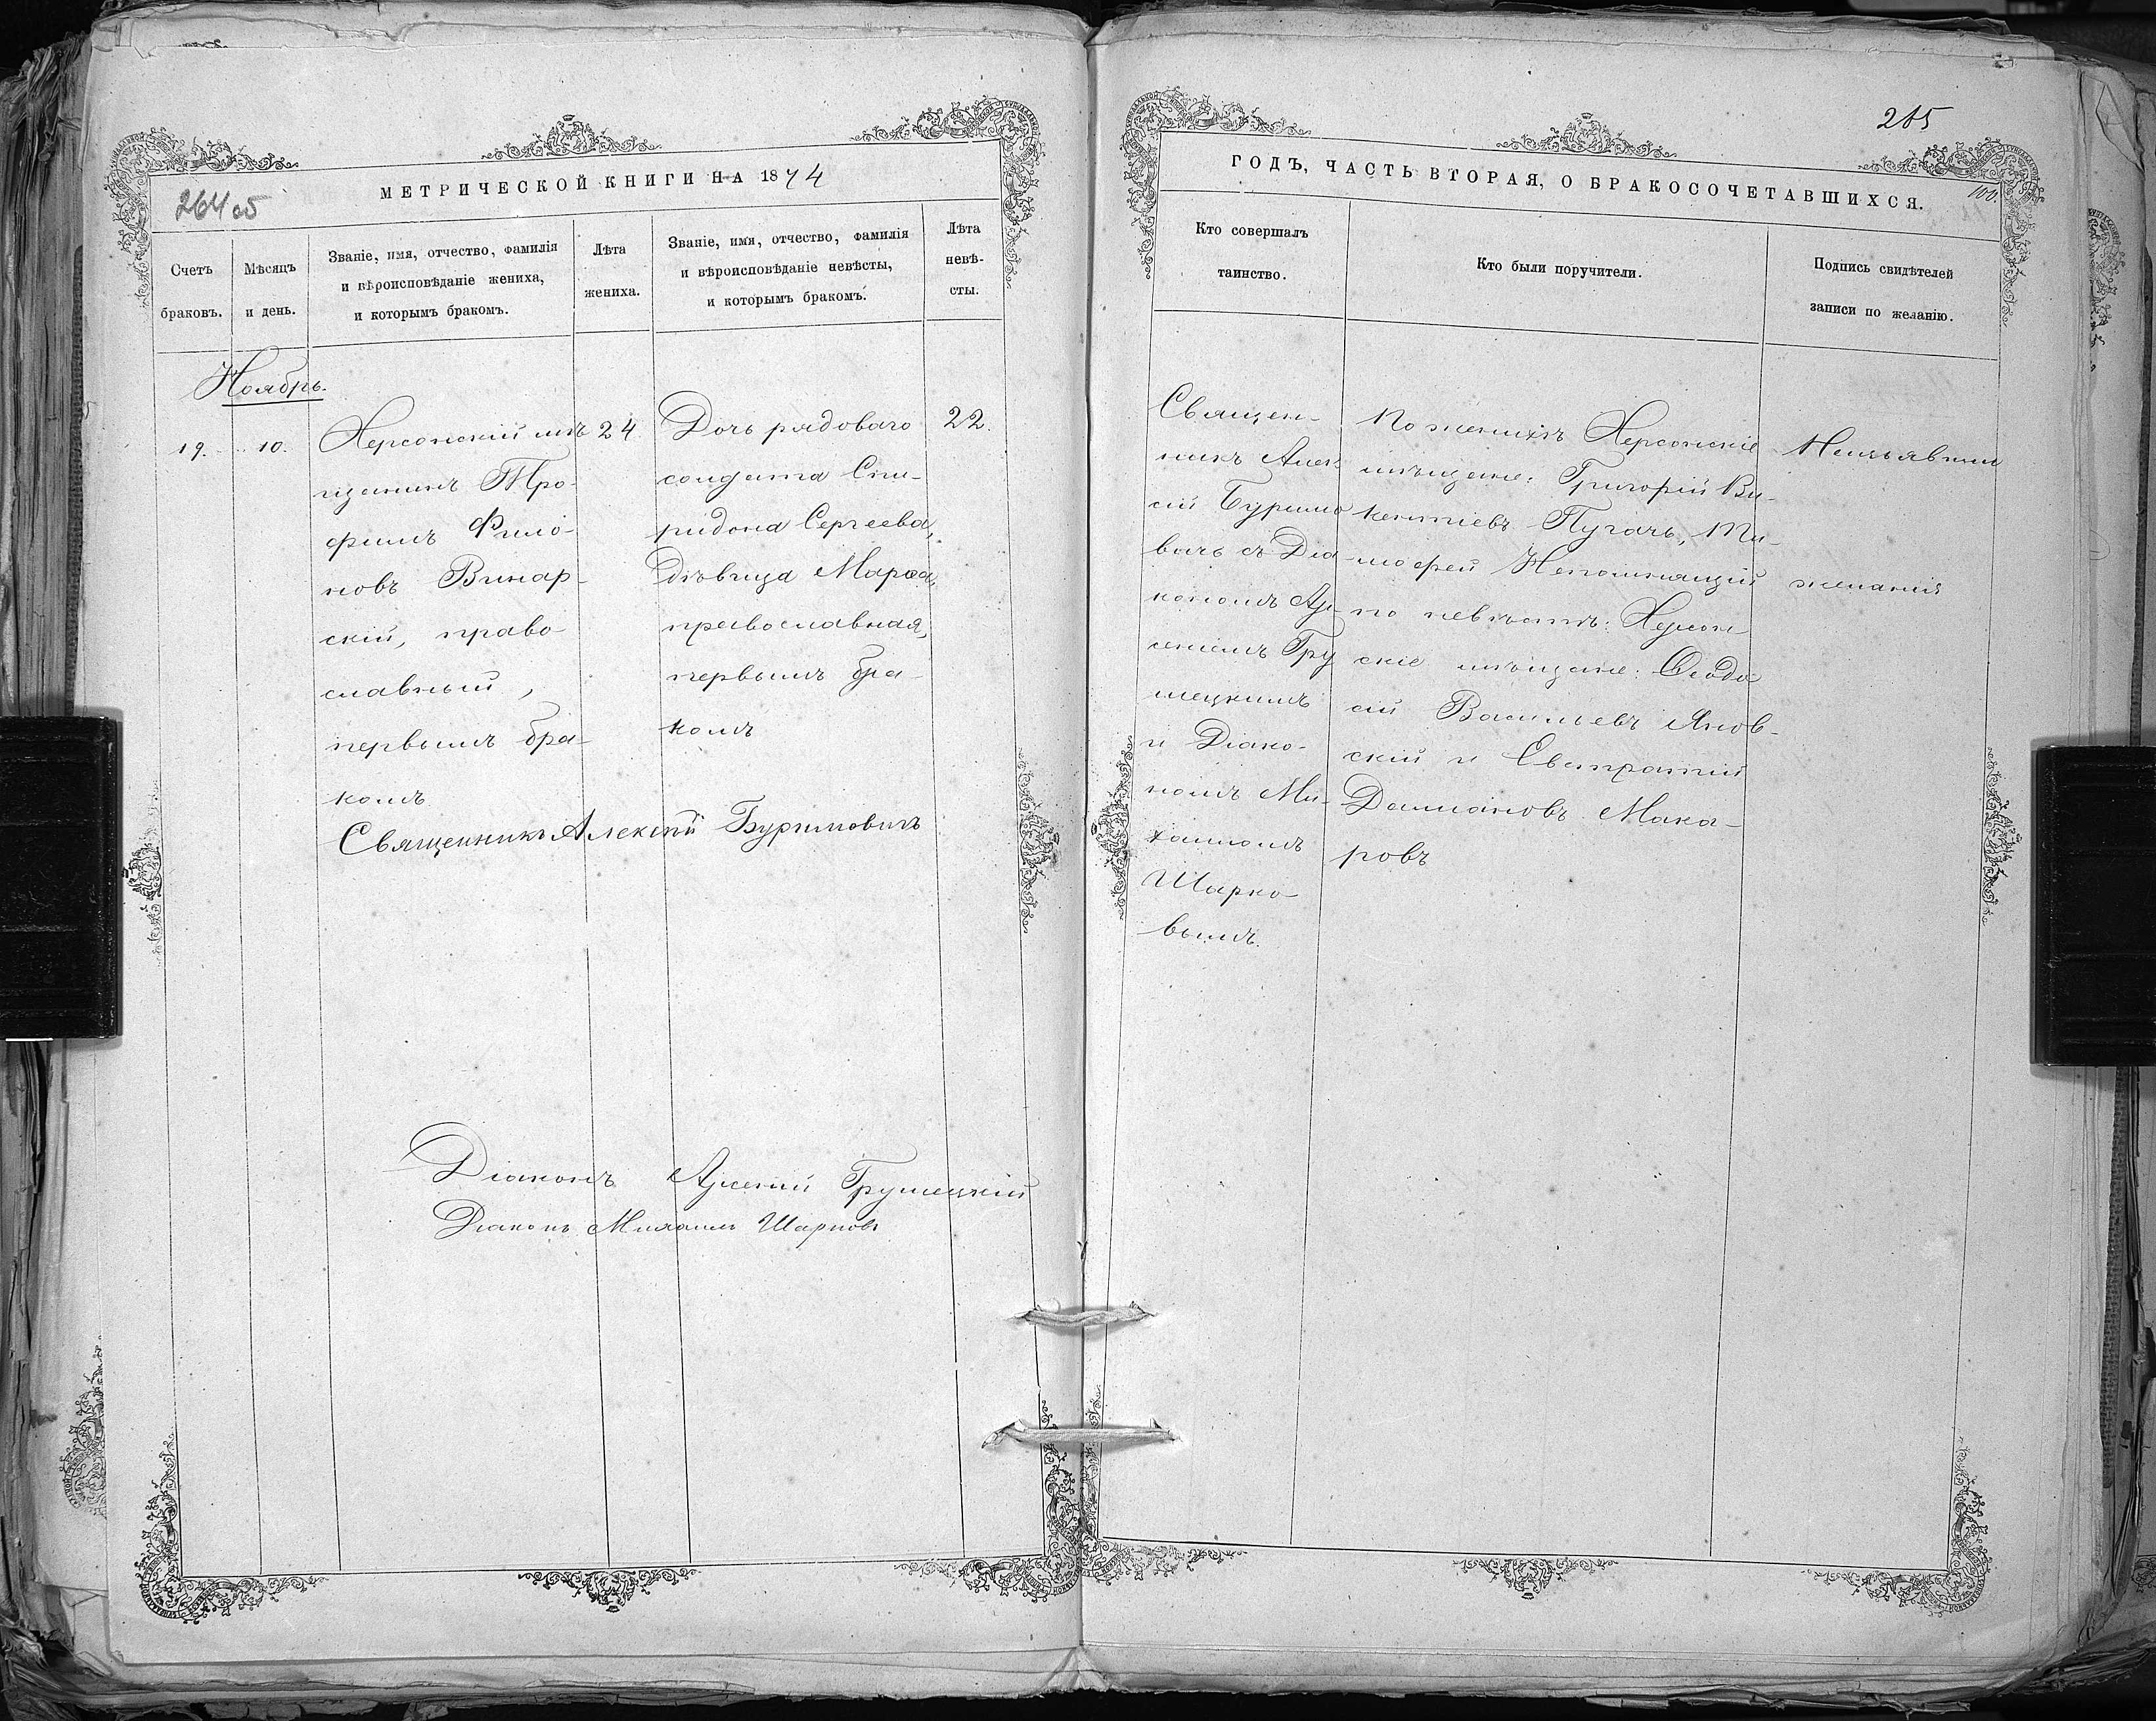 264 об
МЕТРИЧЕСКОЙ КНИГИ НА 1874
Счетъ
браковъ.
Мѣсяцъ
и день.
Званіе, имя, отчество, фамилія
и вѣроисповѣданіе жениха,
и которымъ бракомъ.
Лѣта
жениха.
Званіе, имя, отчество, фамилія
и вѣроисповѣданіе невѣсты,
и которымъ бракомъ.
Лѣта
невѣ-
сты.
Ноябрь.
19.
10.
Херсонскій мѣ
щанинъ Тро-
фимъ Фило-
новъ Винар-
скій, право-
славный,
первымъ бра-
комъ
24
Дочь рядового
солдата Спи-
ридона Сергеева,
Дѣвица Марѳа,
православная,
первымъ бра-
комъ
22.
Священникъ Алексій Буримовичъ
Діаконъ Арсеній Грушецкій
Діаконъ Михаилъ Шарковъ
265
ГОДЪ, ЧАСТЬ ВТОРАЯ, О БРАКОСОЧЕТАВШИХСЯ.
Кто совершалъ
таинство.
Кто были поручители.
Подпись свидѣтелей
записи по желанію.
Священ-
никъ Алек
сій Буримо
вичъ съ Діа-
кономъ Ар-
сеніемъ Гру
шецкимъ
и Діако-
номъ Ми-
хаиломъ
Шарко-
вымъ.
По женихѣ Херсонскіе
мѣщане: Григорій Ви-
кентіевъ Пугачъ, Ти-
мофей Непомнящій
по невѣстѣ: Херсон-
скіе мѣщане: Ѳеодо
сій Васильевъ Янов-
скій и Евстратій
Даміановъ Мака-
ровъ
Неизъявили
желанія